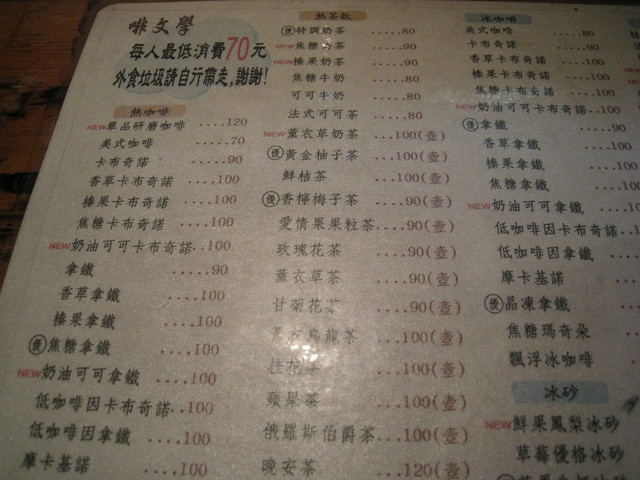 啡文學
每人最低消費70元
外食垃圾請自行帶走,謝謝!
熱咖啡
NEW單品研磨咖啡 ....120
美式咖啡 .....70
卡布奇諾 .....90
香草卡布奇諾 ....100
榛果卡布奇諾 ....100
焦糖卡布奇諾 ....100
NEW奶油可可卡布奇諾..100
拿鐵 .....90
香草拿鐵 ....100
榛果拿鐵 ....100
優焦糖拿鐵 ....100
NEW奶油可可拿鐵 ....100
低咖啡因卡布奇諾..100
低咖啡因拿鐵 ....100
摩卡基諾 ....100
熱茶飲
優特調奶茶 ....80
NEW焦糖奶茶 ....90
NEW榛果奶茶 ....90
焦糖牛奶 ....80
可可牛奶 ....80
法式可可茶 ....80
NEW薰衣草奶茶 ...100(壺)
優黃金柚子茶 ...100(壺)
鮮桔茶 ...100(壺)
優香檸梅子茶 ....90(壺)
愛情果果粒茶....90(壺)
玫瑰花茶 ....90(壺)
薰衣草茶 ....90(壺)
甘菊花茶 ....90(壺)
烏龍茶 ...100(壺)
桂花茶 ...100(壺)
蘋果茶 ...100(壺)
俄羅斯伯爵茶...100(壺)
晚安茶 ...120(壺)
冰咖啡
美式咖啡 .....80
卡布奇諾 .....90
香草卡布奇諾 ....100
榛果卡布奇諾 ....100
焦糖卡布奇諾 ....100
NEW奶油可可卡布奇諾..100
優拿鐵 .....90
香草拿鐵 ....100
榛果拿鐵 ....100
焦糖拿鐵 ....100
NEW奶油可可拿鐵 ....100
低咖啡因卡布奇諾..
低咖啡因拿鐵 ....
摩卡基諾
優晶凍拿鐵
焦糖瑪奇朵
飄浮冰咖啡
冰砂
NEW鮮果鳳梨冰砂
草莓優格冰砂